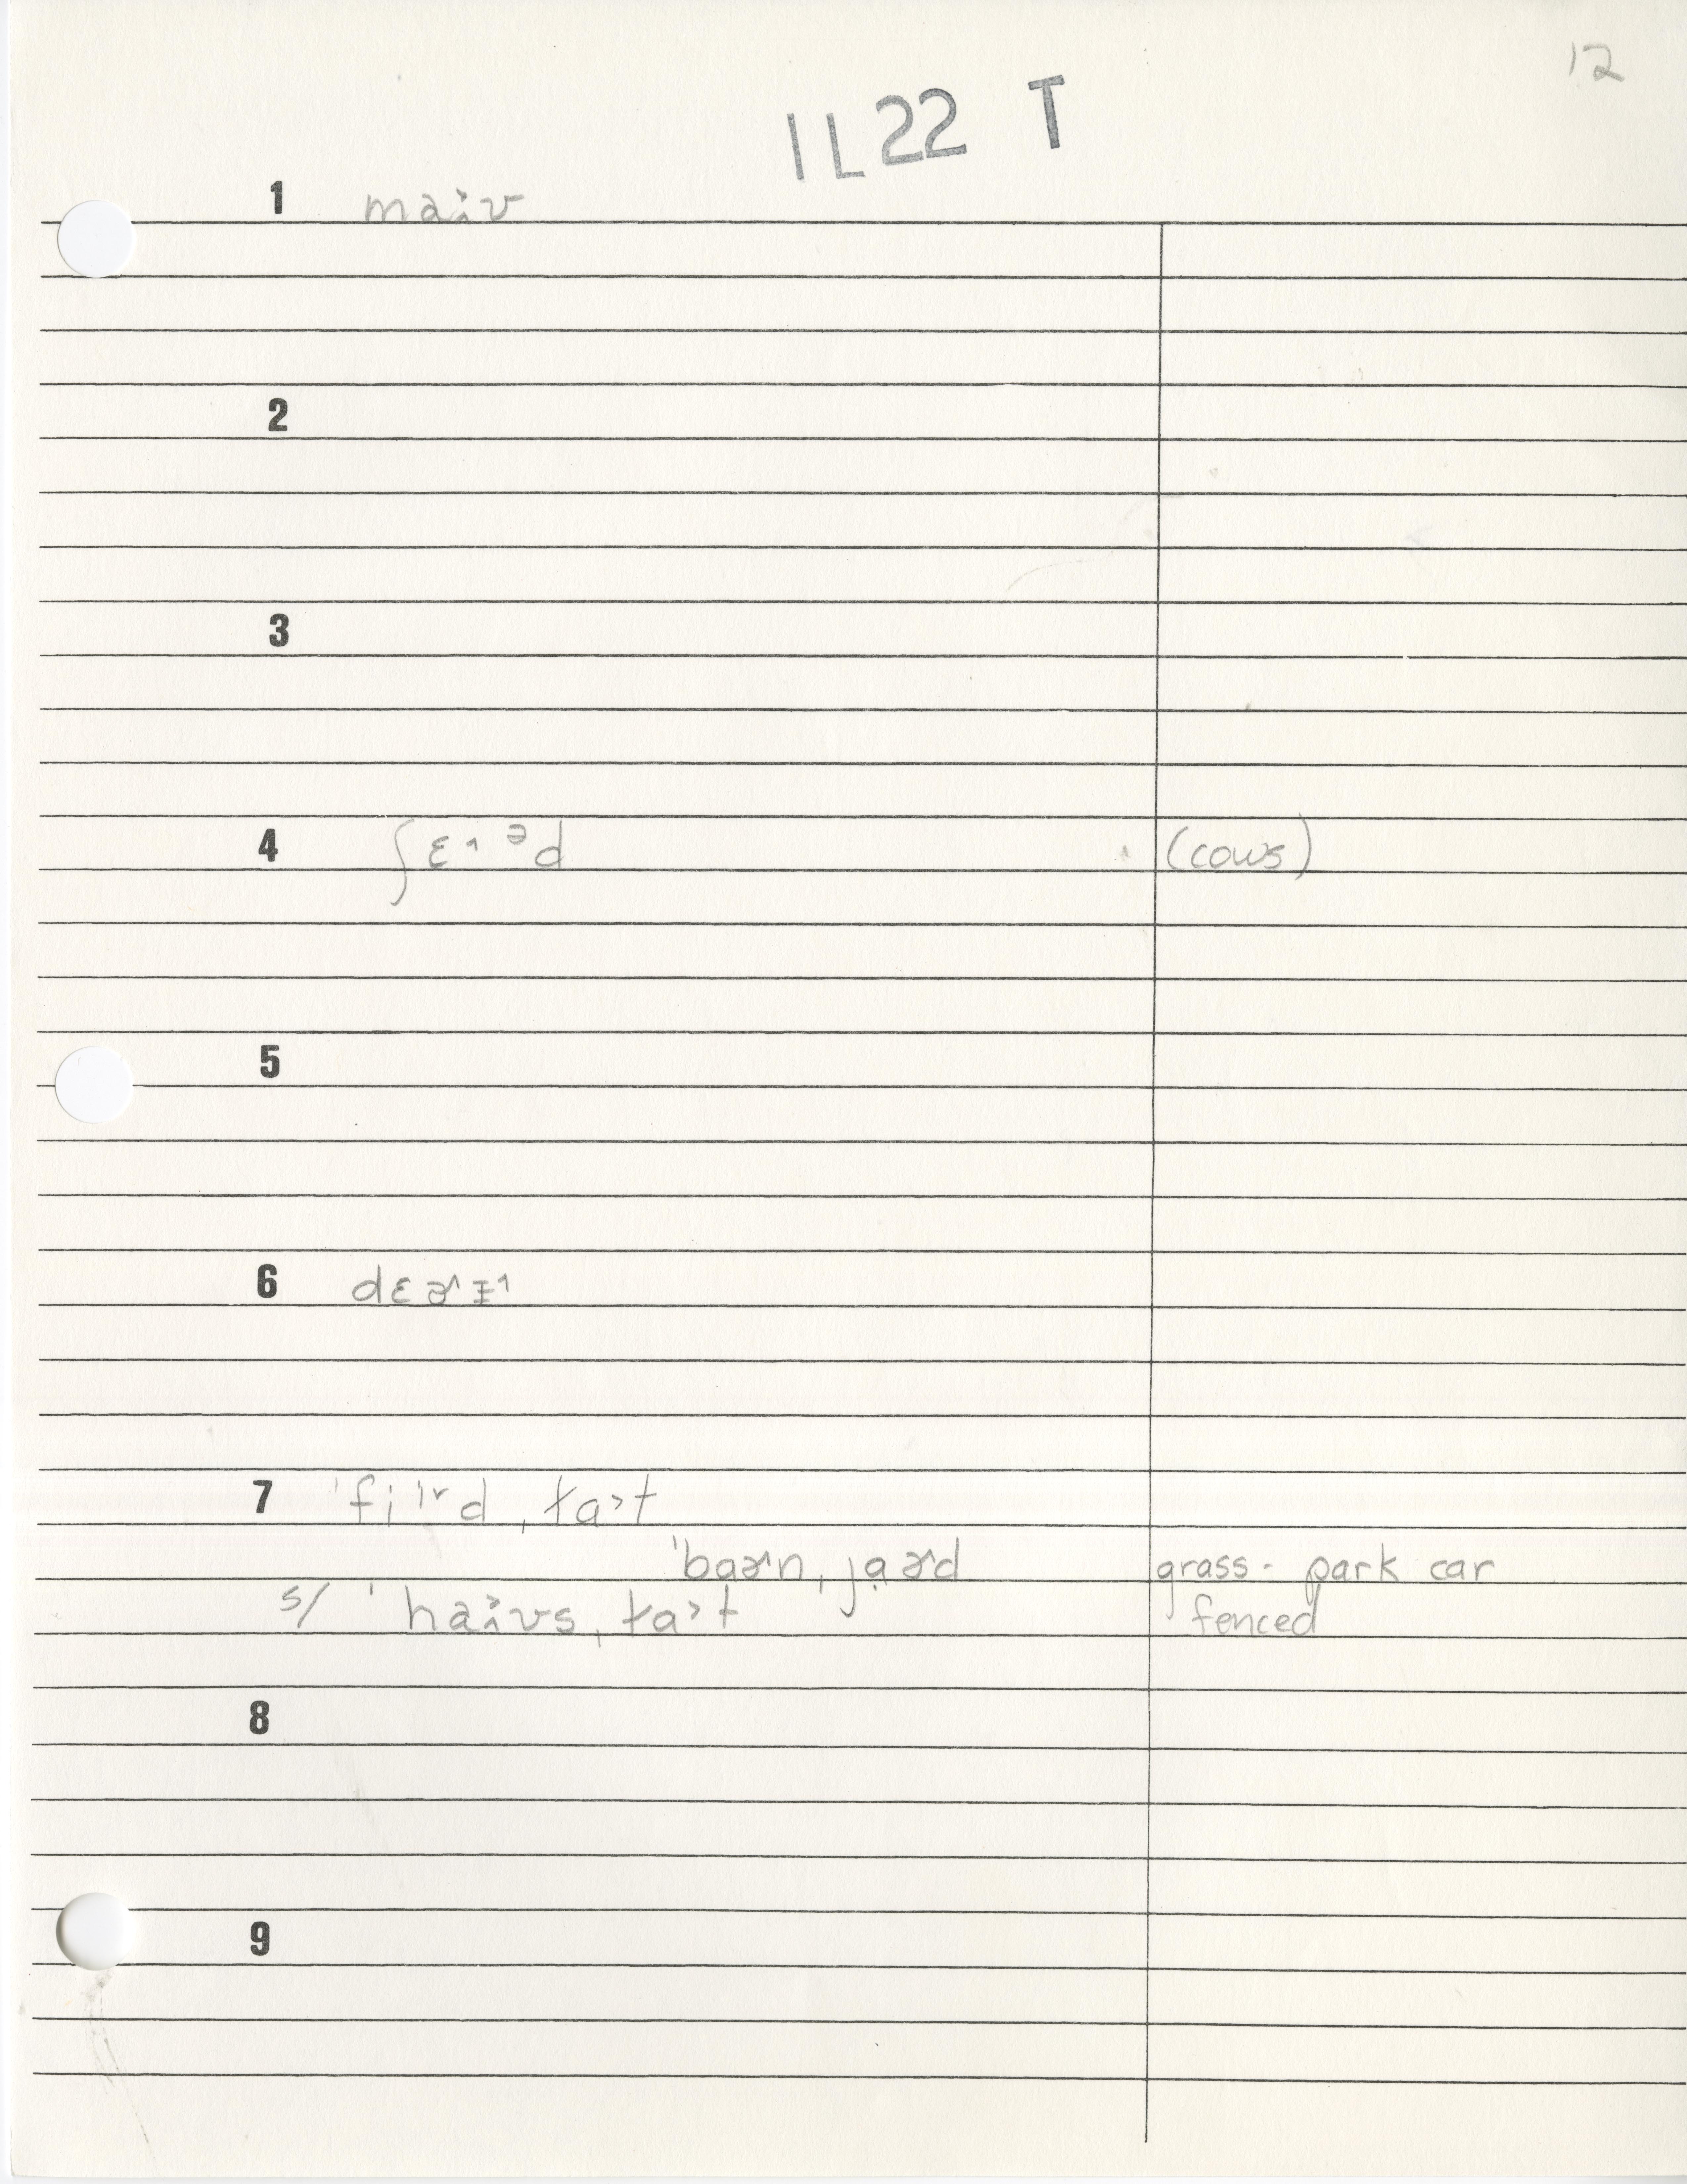 12
IL22 T
1 ma^ʊ
2
3
4 ʃɛ˄ᵊd (cows)
5
6 dɛɚɪ˄
7 ˈfiˡɚd ˌɫa˃t
ˈbaɚnˌjɑɚd grass - park car
s/ ˈha^ʊsˌɫa˃t fenced
8
9